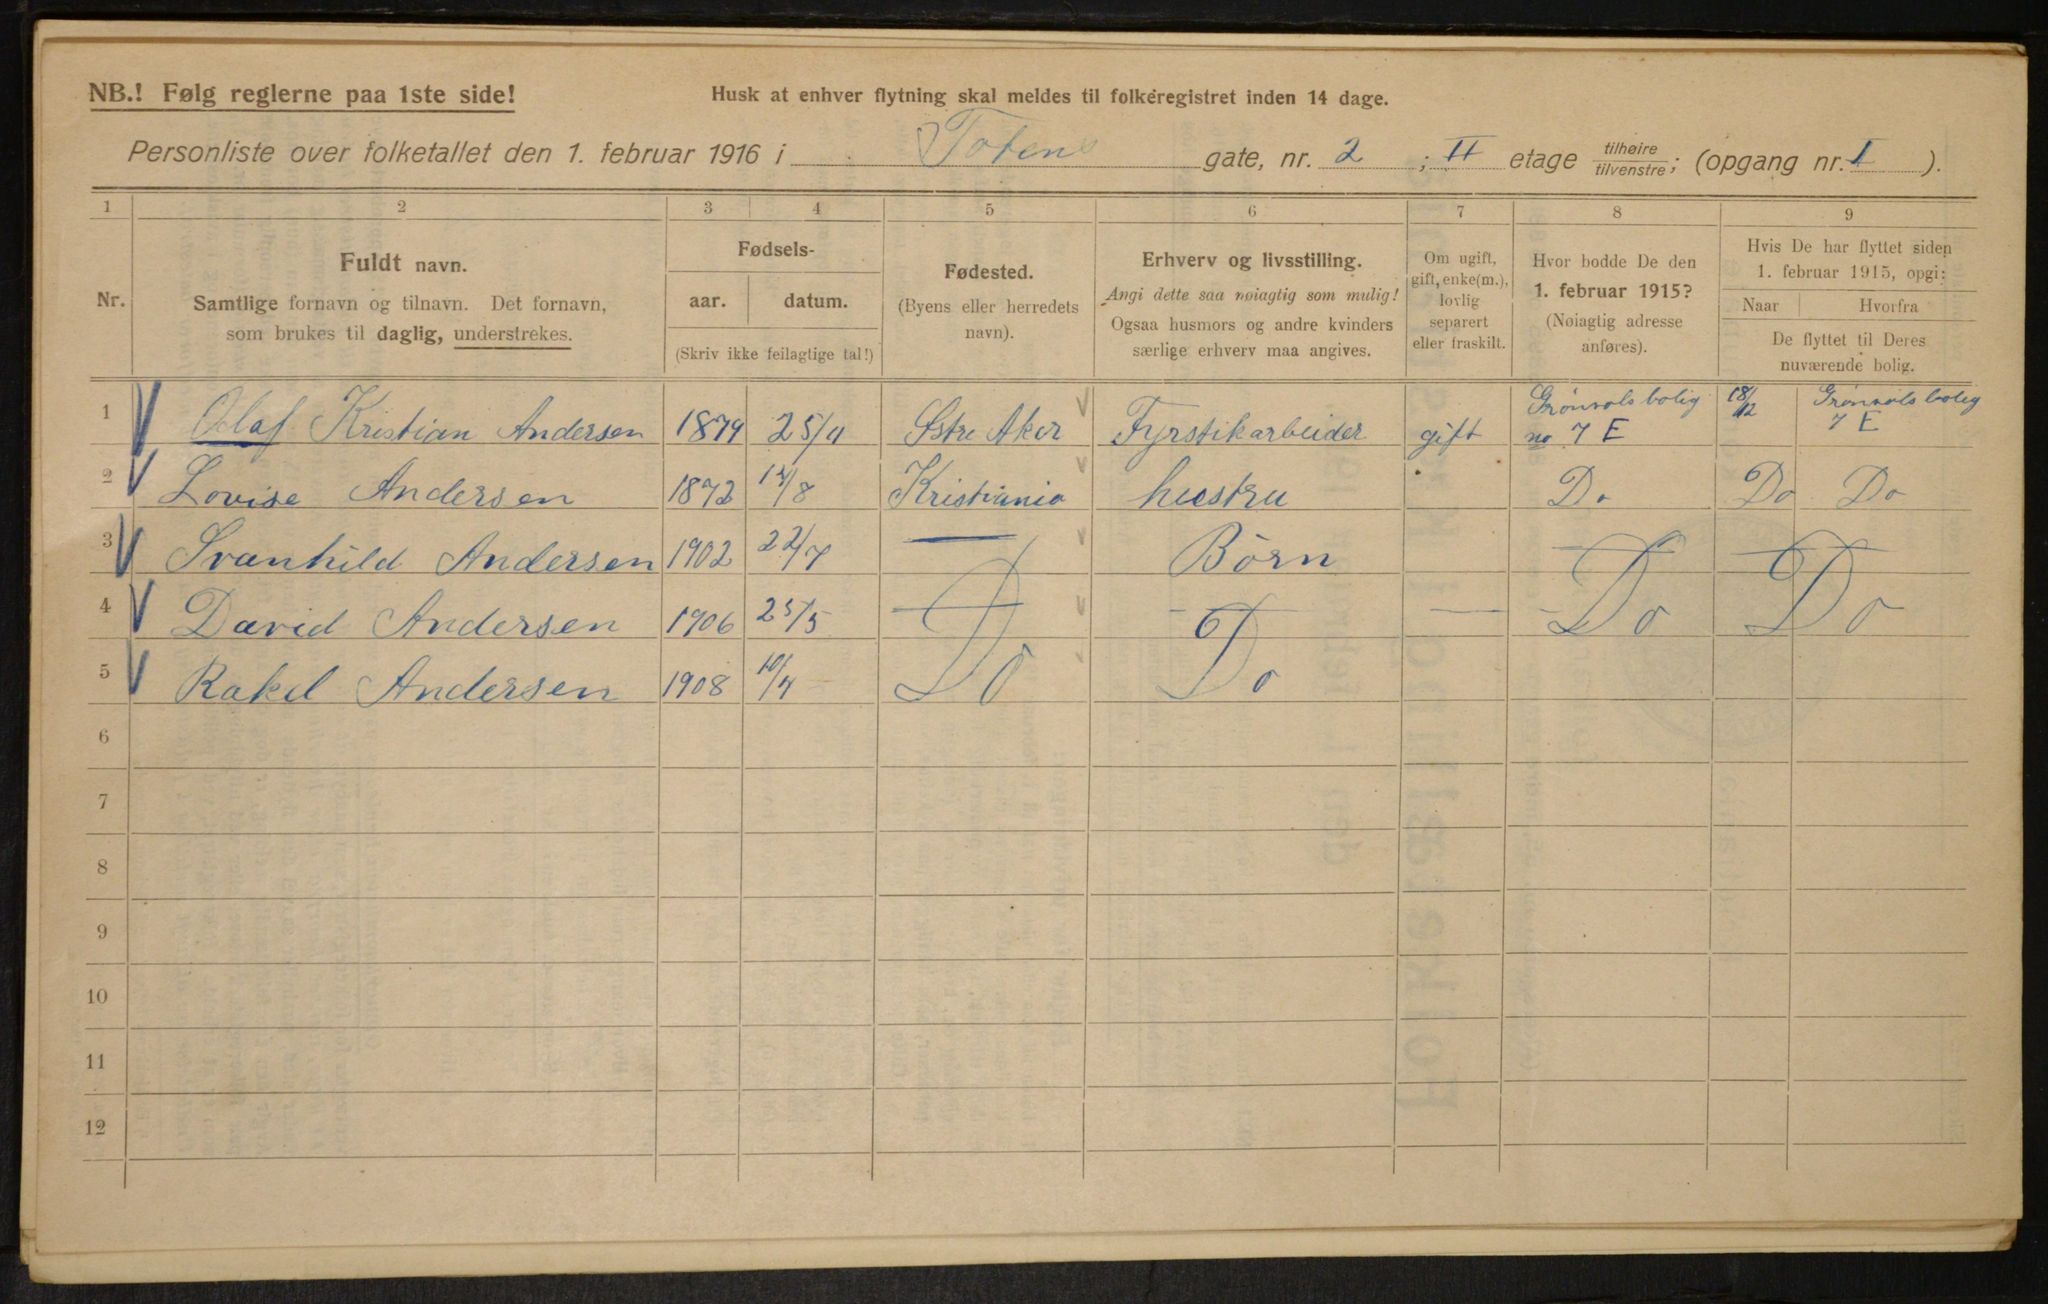 NB.! Følg reglerne paa 1ste side!
Husk at enhver flytning skal meldes til folkeregistret inden 14 dage.
Personliste over folketallet den 1. februar 1916 i Totens gate, nr. 2 ; II etage tilhøire/tilvenstre; (opgang nr. I ).
1 2 3 4 5 6 7 8 9
Nr.
Fuldt navn.
Samtlige fornavn og tilnavn. Det fornavn,
som brukes til daglig, understrekes.
Fødsels-
aar. datum.
(Skriv ikke feilagtige tal!)
Fødested.
(Byens eller herredets
navn).
Erhverv og livsstilling.
Angi dette saa nøiagtig som mulig!
Ogsaa husmors og andre kvinders
særlige erhverv maa angives.
Om ugift,
gift, enke(m.),
lovlig
separert
eller fraskilt.
Hvor bodde De den
1. februar 1915?
(Nøiagtig adresse
anføres).
Hvis De har flyttet siden
1. februar 1915, opgi:
Naar Hvorfra
De flyttet til Deres
nuværende bolig.
1 Olaf Kristian Andersen 1879 25/4 Østre Aker Fyrstikarbeider gift Grønvols bolig no 7 E 18/12 Grønvols bolig 7 E
2 Lovise Andersen 1872 14/8 Kristiania hustru Do Do Do
3 Svanhild Andersen 1902 22/7 — Børn
4 David Andersen 1906 25/5 Do Do — Do Do
5 Rakel Andersen 1908 10/4 Do Do
6
7
8
9
10
11
12